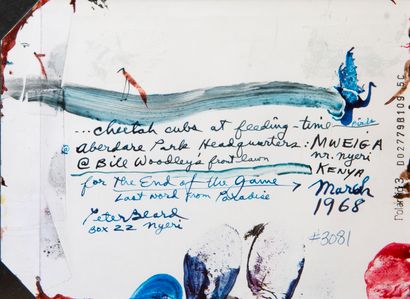 ...cheetah cubs at feeding-time
@ Aberdare Park Headquarters: MWEIGA
@ Bill Woodley's front lawn nr. nyeri
KENYA
for The End of the Game → March
Last word from Paradise 1968
Peter Beard
Box 22 Nyeri
#3081
Polaroid D02779B109 5C